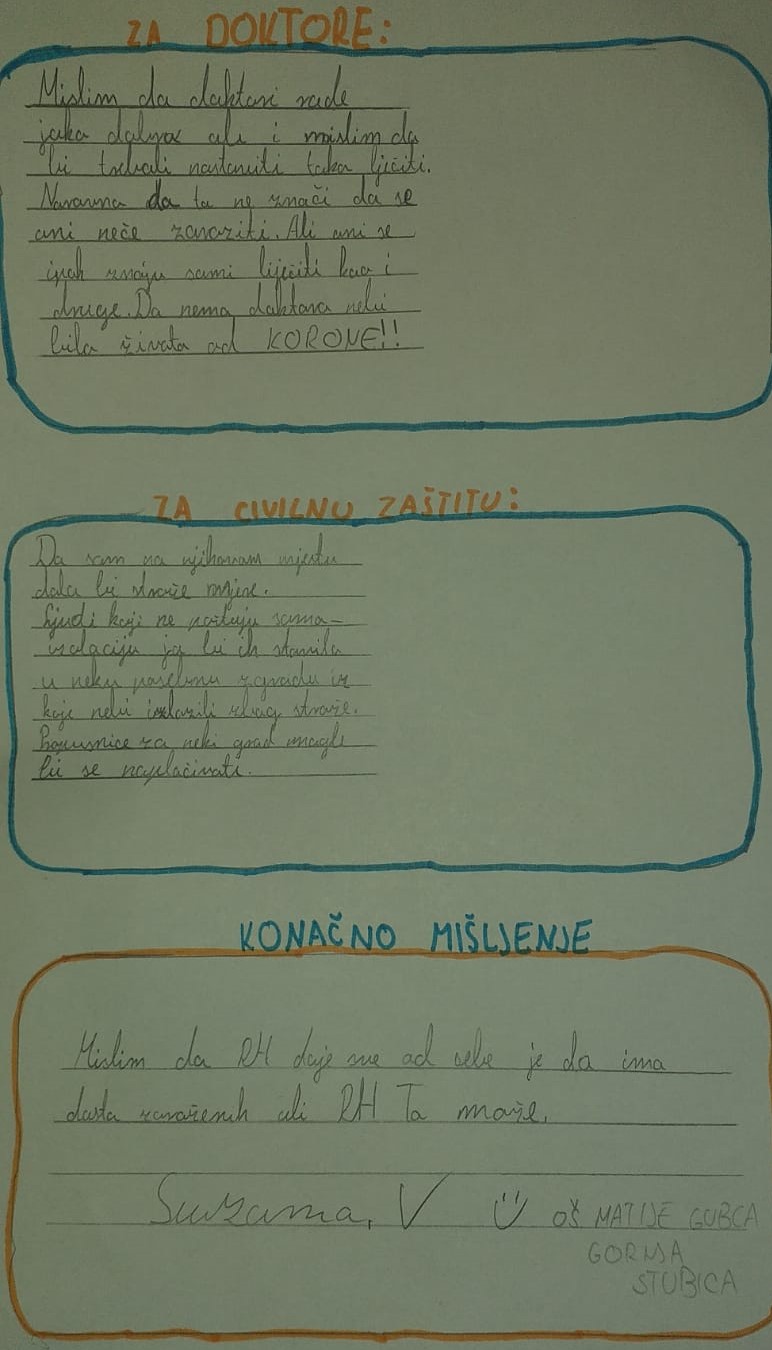 ZA DOKTORE:
Mislim da doktori rade
jako dobro ali i mislim da
bi trebali nastaviti tako ljčiti.
Naravno da to ne znači da se
oni neče zaraziti. Ali oni se
ipak znaju sami liječiti kao i
druge. Da nema doktora nebi
bilo života od KORONE!!
ZA CIVILNU ZAŠTITU:
Da sam na njihovom mjestu
dala bi strože mjere.
Ljudi koji ne poštuju samo-
izolaciju ja bi ih stavila
u neku posebnu zgradu iz
koje nebi izlazili zbog straže.
Propusnice za neki grad mogle
bi se naplačivati.
KONAČNO MIŠLJENJE
Mislim da RH daje sve od sebe je da ima
dosta zaraženih ali RH To može.
Suzana, V
OŠ MATIJE GUBCA
GORNJA
STUBICA